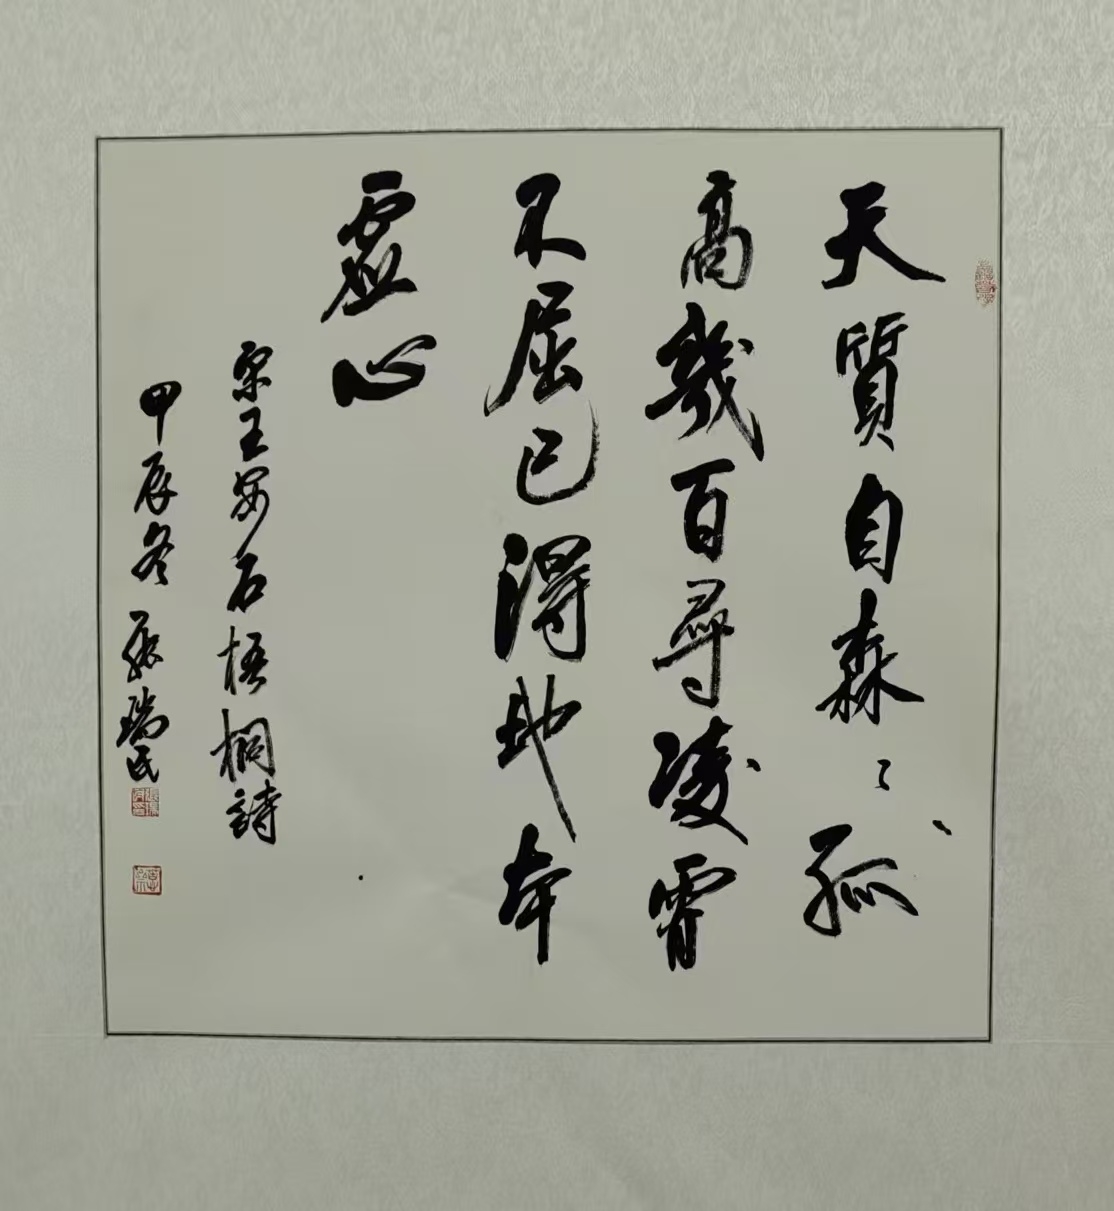 天質自森〻孤
高幾百尋凌霄
不屈己得地本
虛心
宋王安石梧桐詩
甲辰冬 張瑞民